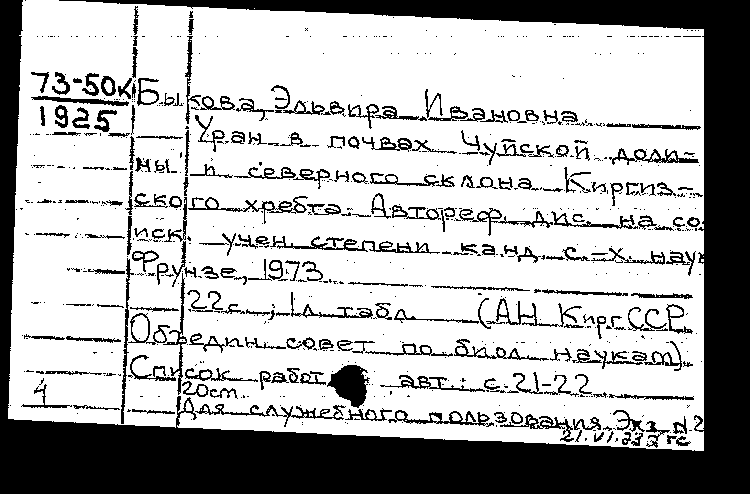 73-50к
1925
Быкова, Эльвира Ивановна
Уран в почвах Чуйской доли-
ны и северного склона Киргиз-
ского хребта. Автореф. дис. на со
иск. учен. степени канд. с.-х. наук
Фрунзе, 1973.
22с.; 1л. табл. (АН Кирг.ССР.
Объедин. совет по биол. наукам).
Список работ авт.: с.21-22
4
20см.
Для служебного пользования. Экз. N2